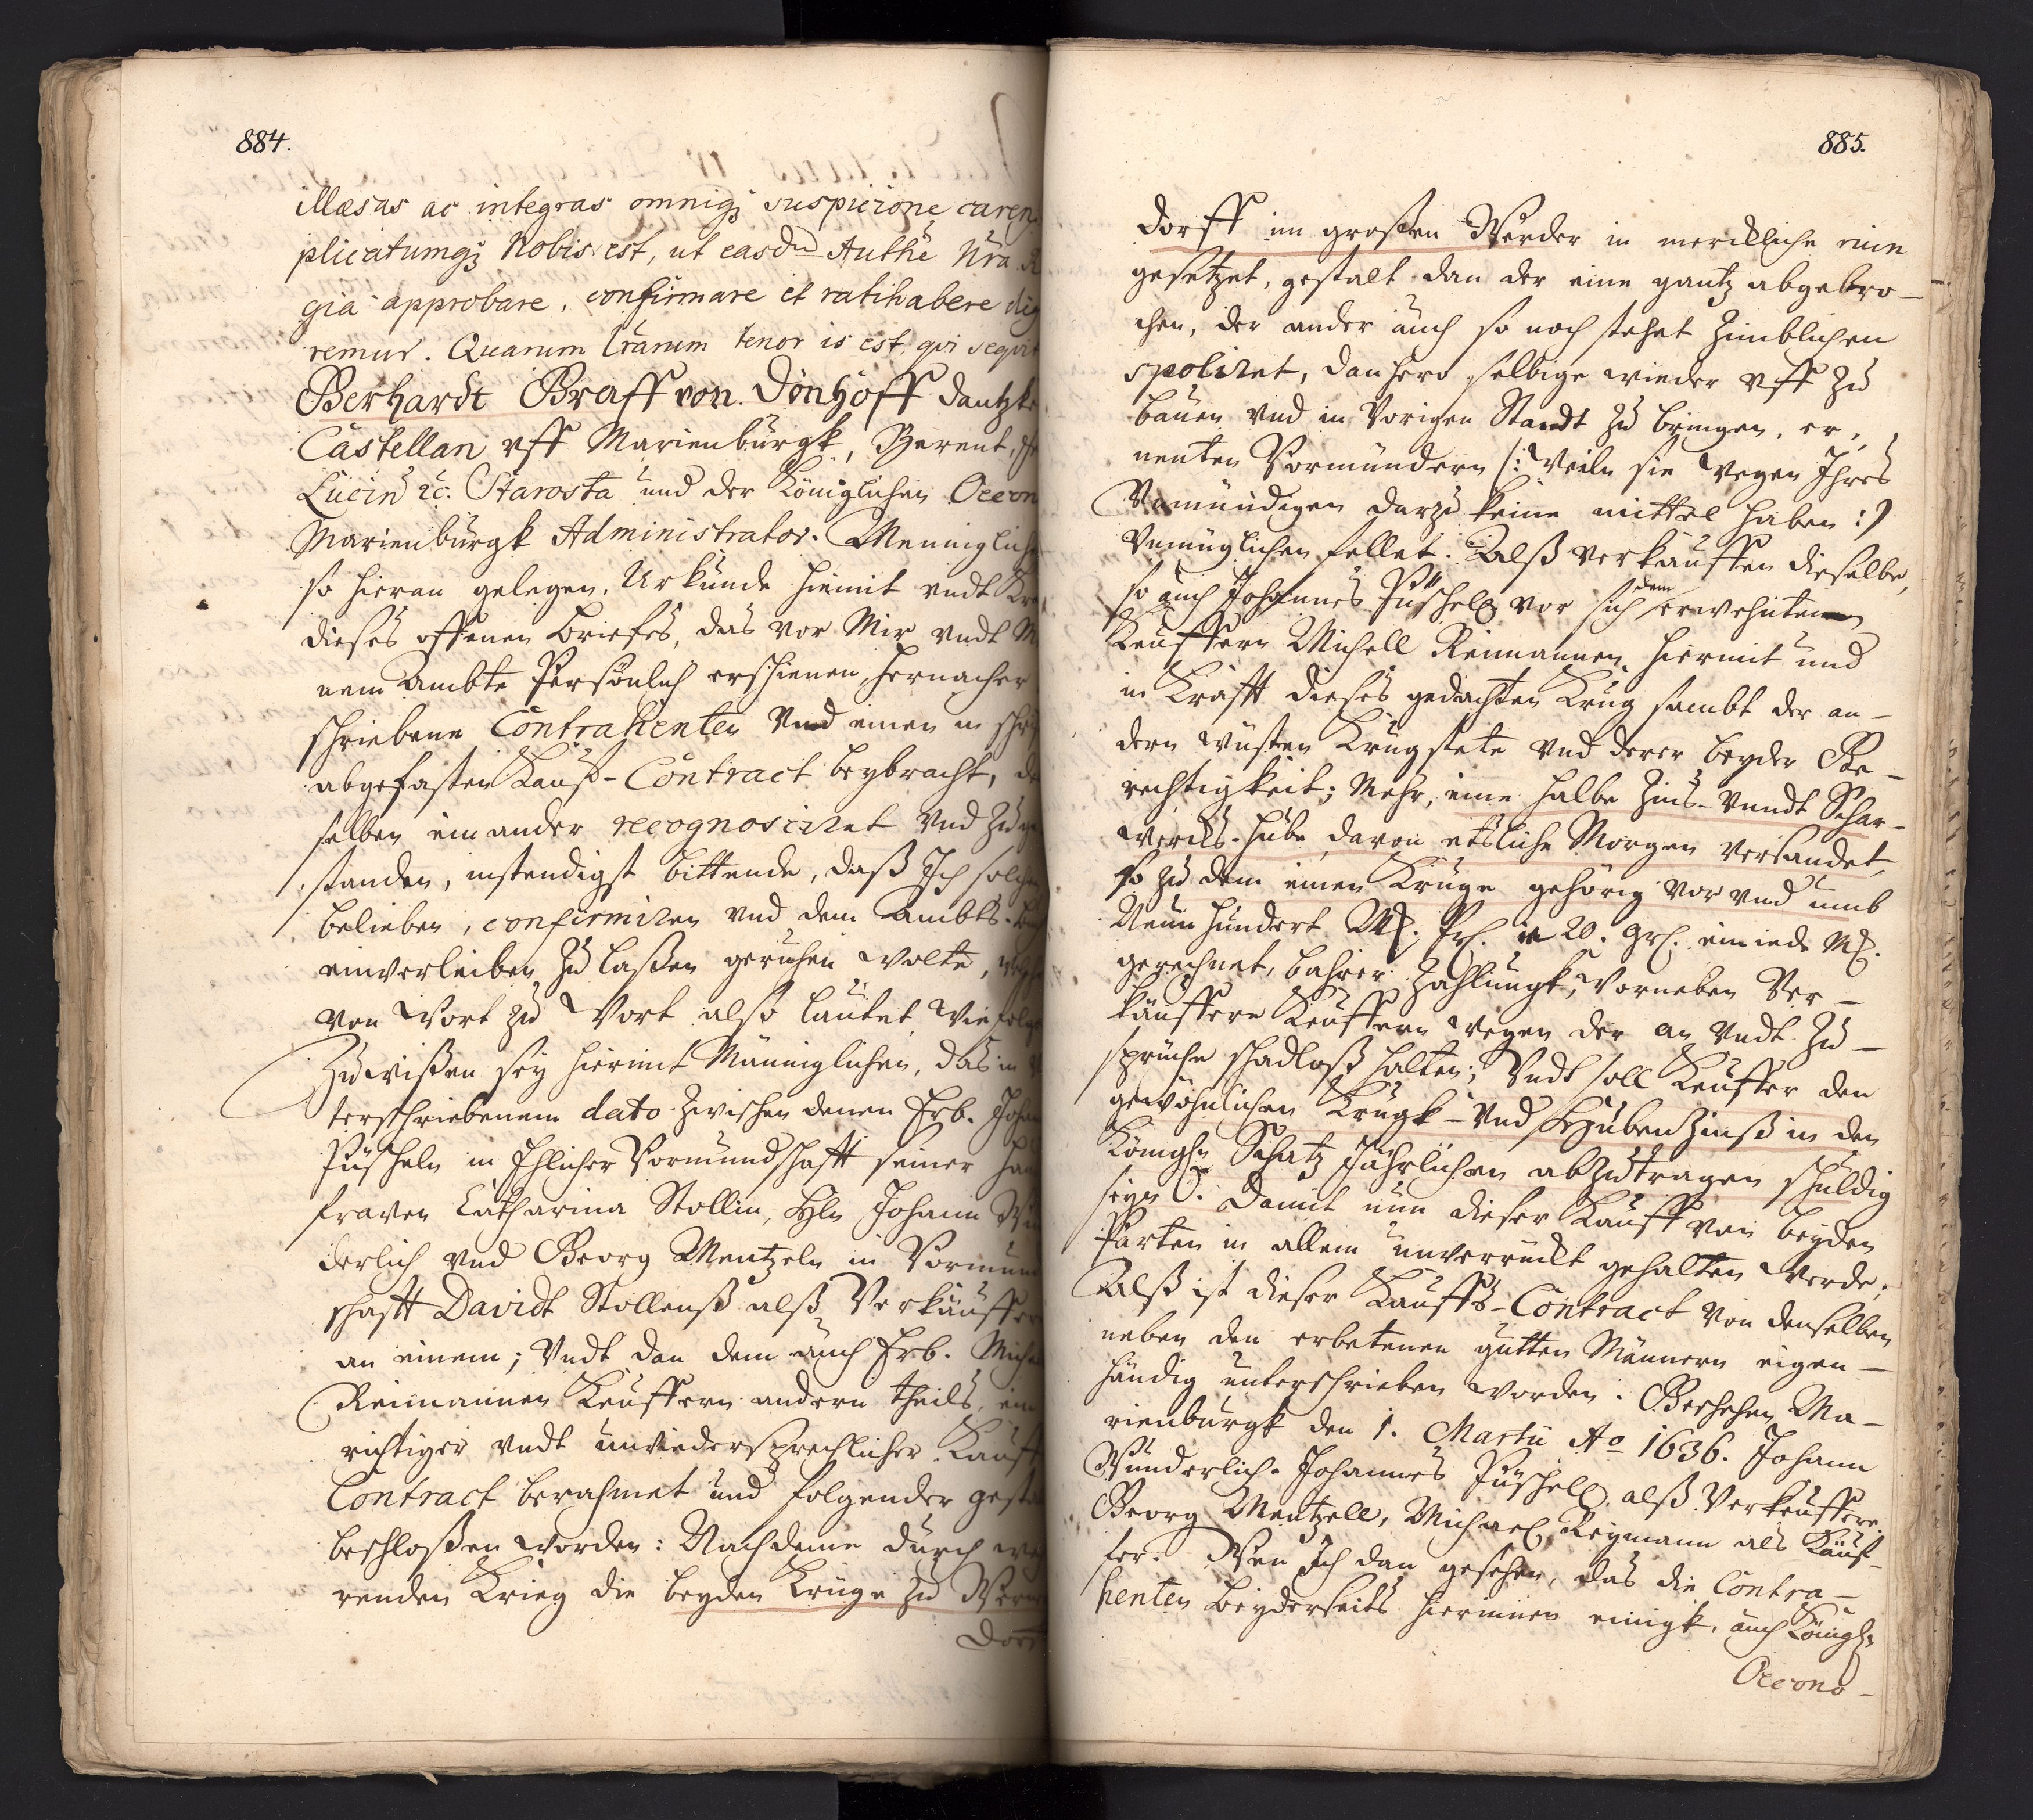 884.
illæsas ac integras omniq; suspicione caren
plicatumq; Nobis est, ut easdm Authe Nra R
gia approbare, confirmare et ratihabere dig
remur. Quarum lrarum tenor is est, qvi seqvit
Gerhardt Graff von Dönhoff dantzk
Castellan vff Marienburgk, Berent,
Lucin ꝛc. Starosta und der Königlichen Oecon
Marienburgk Administrator. Menniglich
so hieran gelegen, Urkunde hiemit vndt Kra
dieses offenen Briefes, das vor Mir vndt M
nem Ambte Persönlich erschienen, hernacher
schriebene Contrahenten Vnd einen in schrif
abgefasten Kauf-Contract beybracht, de
selben einander recognosciret Vnd Zuge
standen, instendigst bittende, daß Ich solchen
belieben, confirmiren vnd dem Ambts-
einverleiben Zu laßen geruhen wolte, welch
von Wort zu Wort also lautet wie folget
Zuwißen sey hiermit Männiglichen, das in
terschriebenem dato Zwischen denen Erb. Johan
Püscheln in Ehlicher Vormundschafft seiner Hau
frawen Catharina Stollin, Hln Johann Wun
derlich vnd Georg Mentzeln in Vormund
schafft Davidt Stollenß alß Verkäuffer
an einem; Vndt dan dem auch Erb. Miche
Reimannen Keuffern andern theils, ein
richtiger vndt unwiedersprechlicher Kauff
Contract berahmet und folgender gesta
beschloßen worden: Nachdeme durch we
renden Krieg die beyden Krüge zu Wern
dorff
885.
dorff im großen Werder in merckliche ruin
gesetzet, gestalt dan der eine gantz abgebro-
chen, der ander auch so noch stehet Zimblichen
spoliret, danhero selbige wieder vff Zu
bauen vnd in Vorigen Standt Zu bringen, er,
nenten Vormündern /: Weiln sie wegen Ihres
Vnmündigen darzu keine mittel haben :/
Vnmüglichen fellet. Alß verkauffen dieselbe,
so auch Johannes Püschell vor sich dem erwehnten
Keuffern Michell Reimannen hiermit und
in Krafft dieses gedachten Krug sambt der an-
dern wüsten Krugstete vnd derer beyder Ge-
rechtigkeit; Mehr, eine halbe Zins-Vnndt Schar-
wercks-hube, davon etsliche Morgen Versandet,
so zu dem einen Kruge gehörig vor vnd umb
Neun hundert M. Pr. je 20. gr. ein iede M.
gerechnet, bahrer Zahlungk, Vorneben Ver-
käuffere Keuffern wegen der an Vndt Zu-
sprüche schadloß halten; Vndt soll Keuffer den
gewöhnlichen Krugk-Vnd Hubenzinß in den
Königln Schatz Jährlichen abzutragen schuldig
seyn. Damit nun dieser Kauff von beyden
Parten in allem unverruckt gehalten werde;
Alß ist dieser Kauffs-Contract von denselben
neben den erbetenen gutten Männern eigen-
händig unterschrieben worden. Geschehen Ma-
rienburgk den 1. Martii Ao 1636. Johann
Wunderlich. Johannes Püschell alß Verkeuffere.
Georg Mentzell, Michael Reymann als Käuf-
fer. Wen Ich dan gesehen, das die Contra-
henten beyderseits hierinnen einigk, auch Köngl.
Oecono-